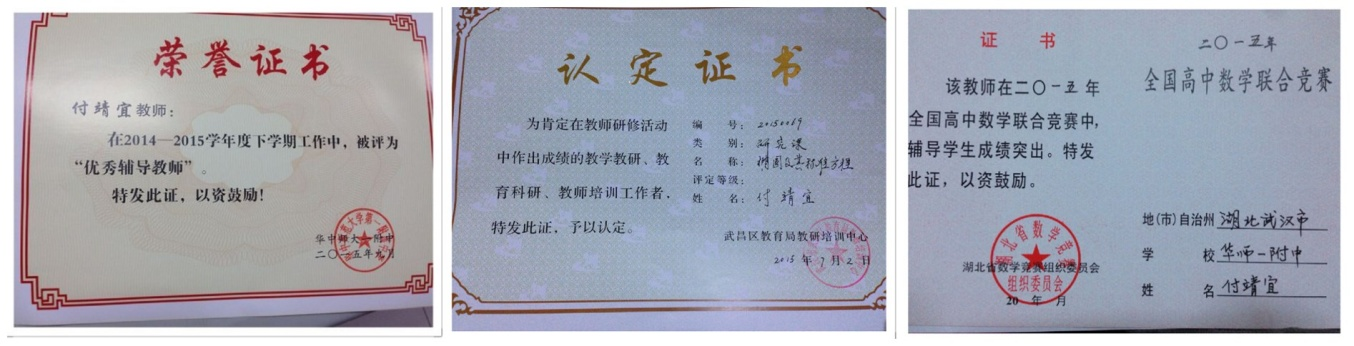 荣誉证书
付靖宜教师：
在2014—2015学年度下学期工作中，被评为
“优秀辅导教师”。
特发此证，以资鼓励！
华中师大一附中
二〇一五年九月
认定证书
为肯定在教师研修活动
中作出成绩的教学教研、教
育科研、教师培训工作者，
特发此证，予以认定。
编号：20150069
类别：研究课
名称：椭圆及其标准方程
评定等级：
姓名：付靖宜
武昌区教育局教研培训中心
2015年7月2日
证书
该教师在二〇一五年
全国高中数学联合竞赛中，
辅导学生成绩突出。特发
此证，以资鼓励。
湖北省数学竞赛组织委员会
20 年 月
湖北省数学竞赛
组织委员会
二〇一五年
全国高中数学联合竞赛
地(市)自治州 湖北武汉市
学校 华师一附中
姓名 付靖宜